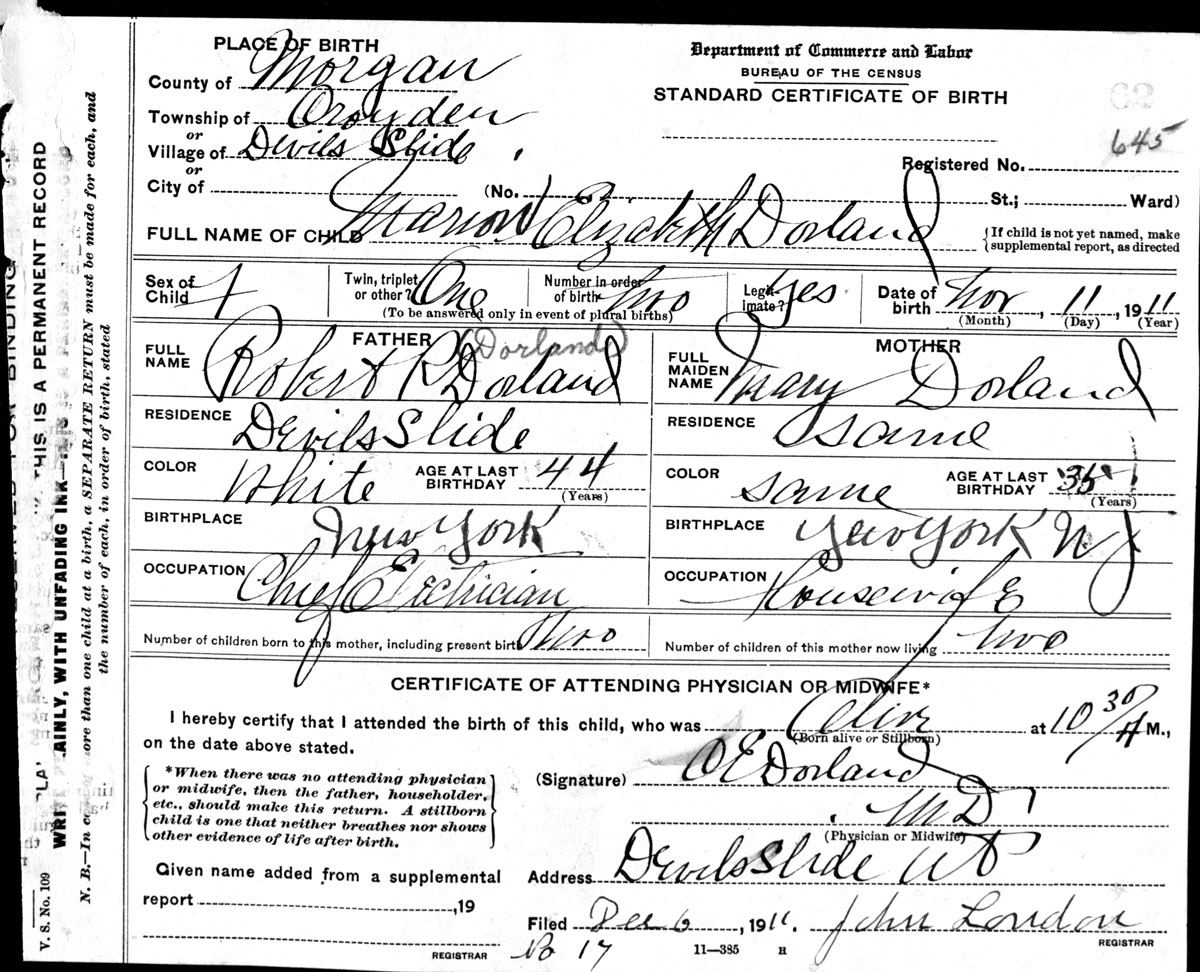 PLACE OF BIRTH
County of Morgan
Township of Croyden
or
Village of Devils Slide
or
City of (No. St.; Ward)
Department of Commerce and Labor
BUREAU OF THE CENSUS
STANDARD CERTIFICATE OF BIRTH
62
645
Registered No.
FULL NAME OF CHILD Marion Elizabeth Dorland
{If child is not yet named, make
supplemental report, as directed
Sex of Child f
Twin, triplet, or other? One
Number in order of birth two
(To be answered only in event of plural births)
Legitimate? yes
Date of birth Nov, 11, 1911
(Month) (Day) (Year)
FATHER
(Dorland)
FULL NAME Robert R Dorland
RESIDENCE Devils Slide
COLOR White
AGE AT LAST BIRTHDAY 44
(Years)
BIRTHPLACE New York
OCCUPATION Chief Electrician
MOTHER
FULL MAIDEN NAME Mary Dorland
RESIDENCE Same
COLOR same
AGE AT LAST BIRTHDAY 35
(Years)
BIRTHPLACE New York NY
OCCUPATION Housewife
Number of children born to this mother, including present birth two
Number of children of this mother now living two
CERTIFICATE OF ATTENDING PHYSICIAN OR MIDWIFE*
I hereby certify that I attended the birth of this child, who was Alive at 10 30 A M.,
(Born alive or Stillborn)
on the date above stated.
{*When there was no attending physician
or midwife, then the father, householder,
etc., should make this return. A stillborn
child is one that neither breathes nor shows
other evidence of life after birth.}
(Signature) O E Dorland
M D
(Physician or Midwife)
Given name added from a supplemental
report , 19
REGISTRAR
Address Devils Slide UT
Filed Dec 6, 1911. John London
REGISTRAR
No 17
11—385 H
THIS IS A PERMANENT RECORD
N. B.—In more than one child at a birth, a SEPARATE RETURN must be made for each, and
the number of each, in order of birth, stated
V. S. No. 109